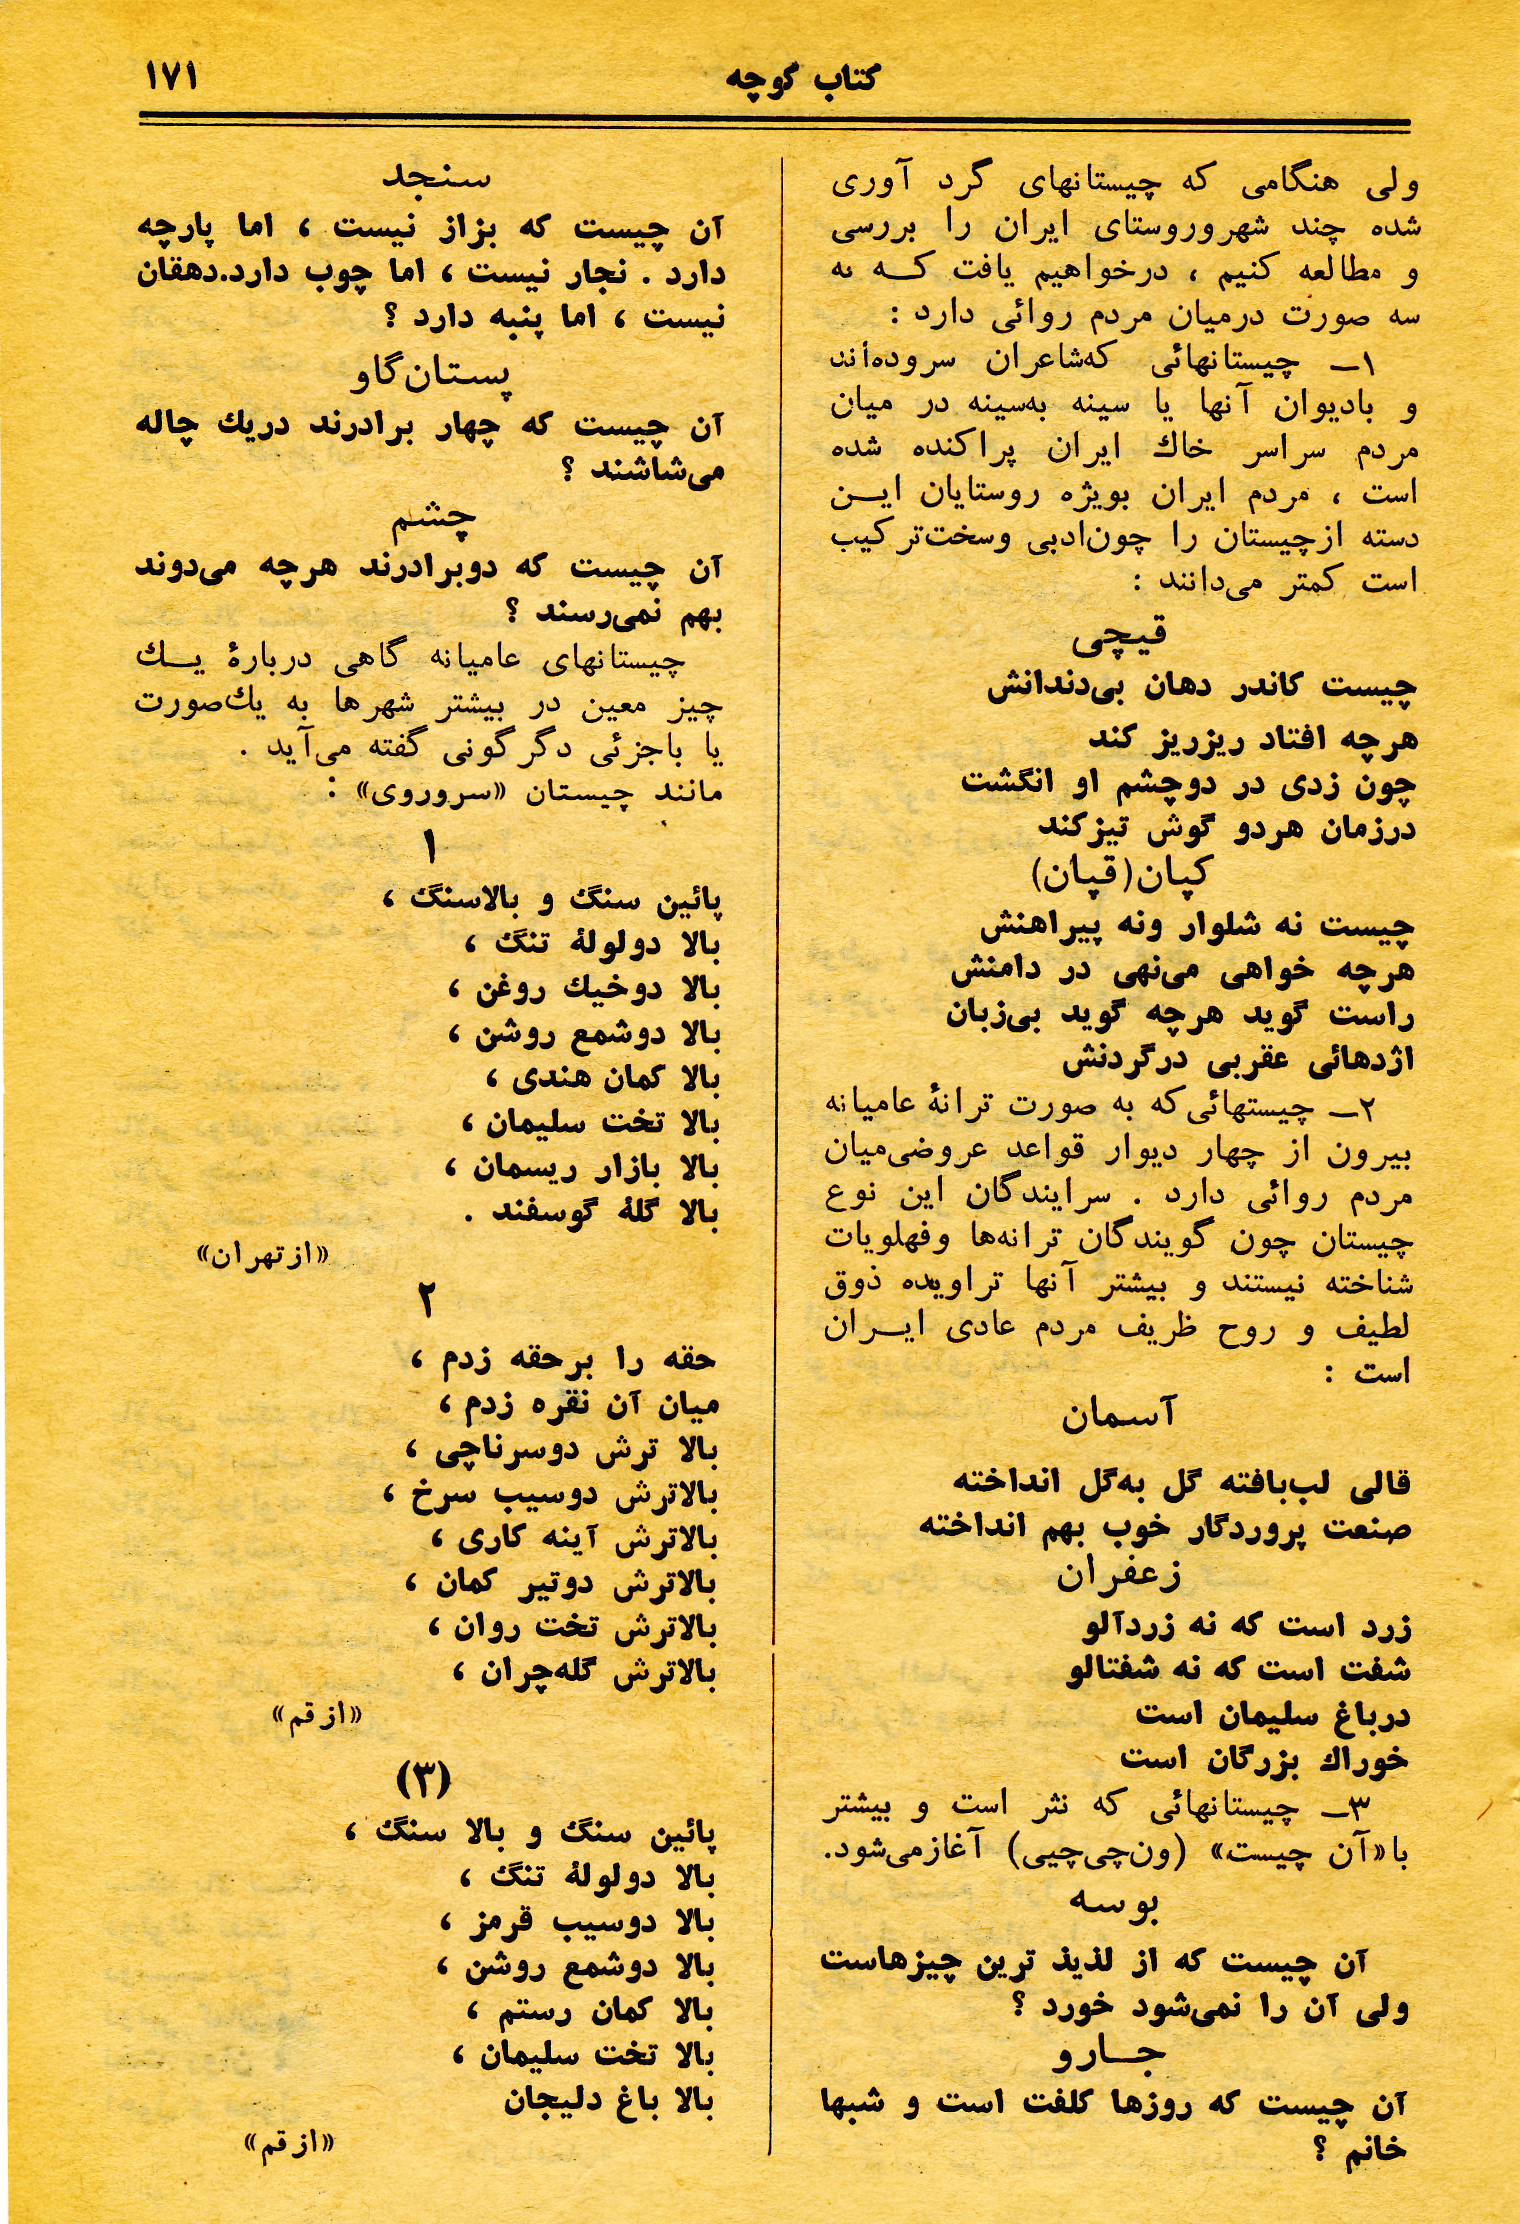 کتاب کوچه
۱۷۱
ولی هنگامی که چیستانهای گرد آوری
شده چند شهروروستای ایران را بررسی
و مطالعه کنیم ، درخواهیم یافت کـه به
سه صورت درمیان مردم روائی دارد :
۱ــ چیستانهائی که‌شاعران سروده‌اند
و بادیوان آنها یا سینه به‌سینه در میان
مردم سراسر خاك ایران پراکنده شده
است ، مردم ایران بویژه روستایان ایـن
دسته ازچیستان را چون‌ادبی وسخت‌ترکیب
است کمتر می‌دانند :
قیچی
چیست کاندر دهان بی‌دندانش
هرچه افتاد ریزریز کند
چون زدی در دوچشم او انگشت
درزمان هردو گوش تیزکند
کپان (قپان)
چیست نه شلوار ونه پیراهنش
هرچه خواهی می‌نهی در دامنش
راست گوید هرچه گوید بی‌زبان
اژدهائی عقربی درگردنش
۲ــ چیستهائی‌که به صورت ترانهٔ عامیانه
بیرون از چهار دیوار قواعد عروضی‌میان
مردم روائی دارد . سرایندگان این نوع
چیستان چون گویندگان ترانه‌ها وفهلویات
شناخته نیستند و بیشتر آنها تراویده ذوق
لطیف و روح ظریف مردم عادی ایـران
است :
آسمان
قالی لب‌بافته گل به‌گل انداخته
صنعت پروردگار خوب بهم انداخته
زعفران
زرد است که نه زردآلو
شفت است که نه شفتالو
درباغ سلیمان است
خوراك بزرگان است
۳ــ چیستانهائی که نثر است و بیشتر
با«آن چیست» (ون‌چی‌چیی) آغازمی‌شود.
بوسه
آن چیست که از لذیذ ترین چیزهاست
ولی آن را نمی‌شود خورد ؟
جـارو
آن چیست که روزها کلفت است و شبها
خانم ؟
سنجد
آن چیست که بزاز نیست ، اما پارچه
دارد . نجار نیست ، اما چوب دارد.دهقان
نیست ، اما پنبه دارد ؟
پستان‌گاو
آن چیست که چهار برادرند دریك چاله
می‌شاشند ؟
چشم
آن چیست که دوبرادرند هرچه می‌دوند
بهم نمی‌رسند ؟
چیستانهای عامیانه گاهی دربارهٔ یـك
چیز معین در بیشتر شهرها به یك‌صورت
یا باجزئی دگرگونی گفته می‌آید .
مانند چیستان «سروروی» :
۱
پائین سنگ و بالاسنگ ،
بالا دولولهٔ تنگ ،
بالا دوخیك روغن ،
بالا دوشمع روشن ،
بالا کمان هندی ،
بالا تخت سلیمان ،
بالا بازار ریسمان ،
بالا گلهٔ گوسفند .
«ازتهران»
۲
حقه را برحقه زدم ،
میان آن نقره زدم ،
بالا ترش دوسرناچی ،
بالاترش دوسیب سرخ ،
بالاترش آینه کاری ،
بالاترش دوتیر کمان ،
بالاترش تخت روان ،
بالاترش گله‌چران ،
«ازقم»
(۳)
پائین سنگ و بالا سنگ ،
بالا دولولهٔ تنگ ،
بالا دوسیب قرمز ،
بالا دوشمع روشن ،
بالا کمان رستم ،
بالا تخت سلیمان ،
بالا باغ دلیجان
«ازقم»